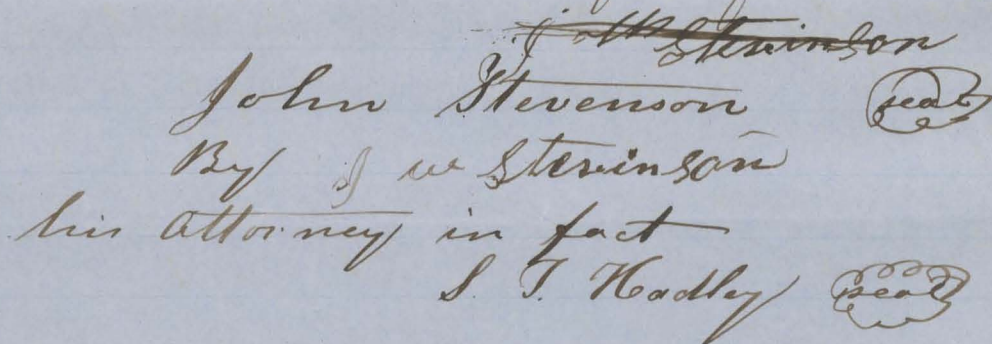 John Stevinson
John Stevenson seal
By J W Stevinson
his Attorney in fact
S. T. Hadley seal